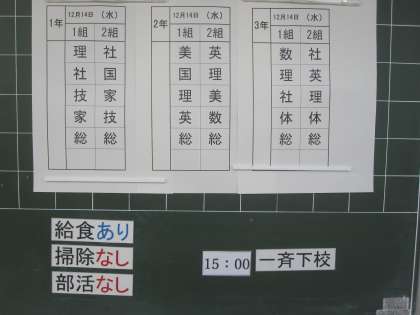 1年 12月14日 (水)
1組 2組
理 社
社 国
技 家
家 技
総 総
2年 12月14日 (水)
1組 2組
美 英
国 理
理 美
英 数
総 総
3年 12月14日 (水)
1組 2組
数 社
理 英
社 理
体 体
総 総
給食あり
掃除なし
部活なし
15:00 一斉下校